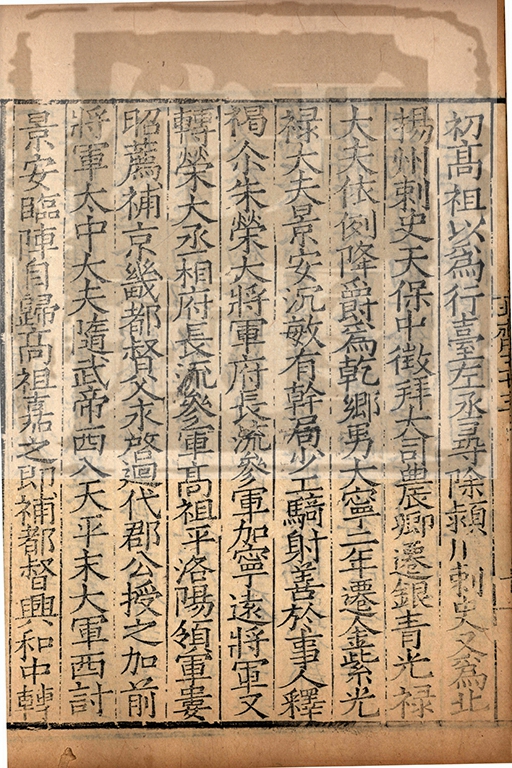 初高祖以為行臺左丞尋除潁川刺史又為北
揚州刺史天保中徵拜大司農卿遷銀青光祿
大夫依例降爵為乾鄉男大寧二年遷金紫光
祿大夫景安沉敏有幹局少工騎射善於事人釋
褐尒朱榮大將軍府長流參軍加寧遠將軍又
轉榮大丞相府長流參軍高祖平洛陽領軍婁
昭薦補京畿都督父永啓迴代郡公授之加前
將軍太中大夫隨武帝西入天平末大軍西討
景安臨陣自歸高祖嘉之即補都督興和中轉